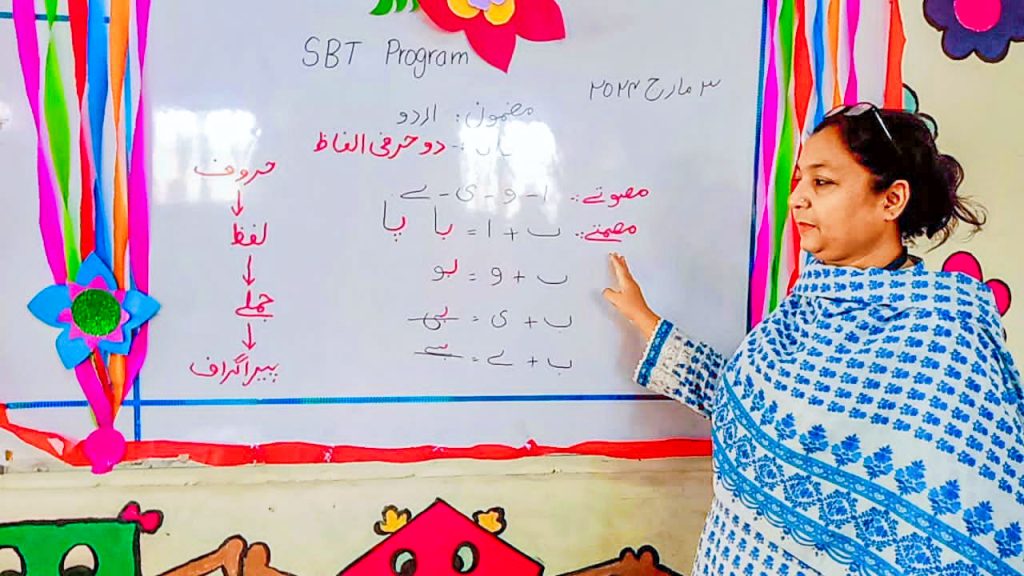 SBT Program
۳ مارچ ۲۰۲۲
مضمون: اردو
دو حرفی الفاظ
مصوتے: ا - و - ی - ے
مصمتے: ب + ا = با پا
ب + و = بو
ب + ی = بی
ب + ے = بے
حروف
↓
لفظ
↓
جملے
↓
پیراگراف